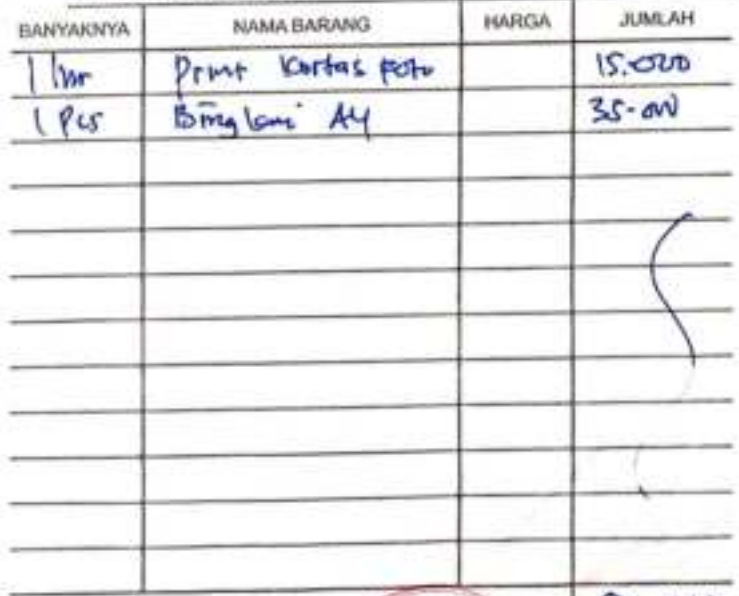 BANYAKNYA NAMA BARANG HARGA JUMLAH
1 lbr Print Kertas Foto 15.000
1 Pcs Bingkai A4 35.000